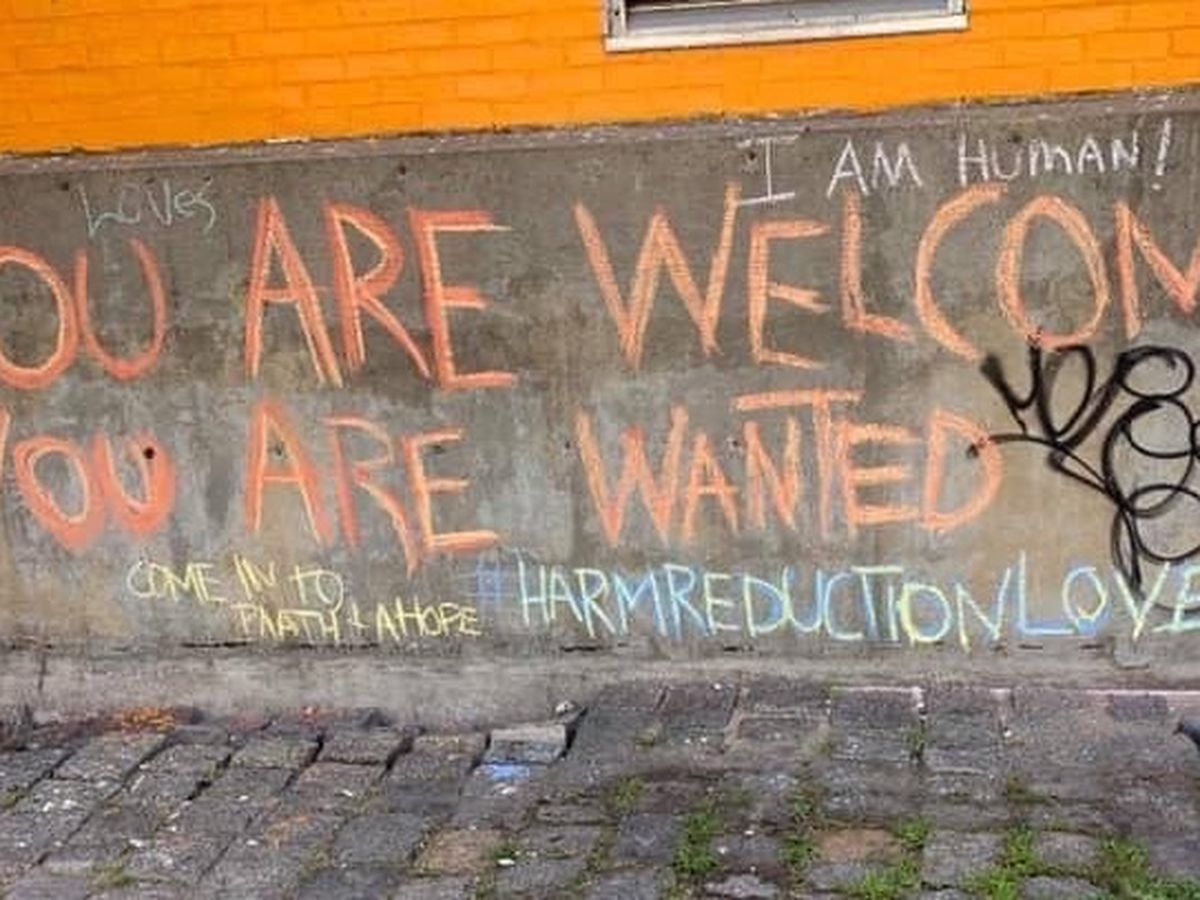 I AM HUMAN!
LOVES
OU ARE WELCOM
YOU ARE WANTED
COME IN TO
PAATH + AHOPE
#HARMREDUCTIONLOVE